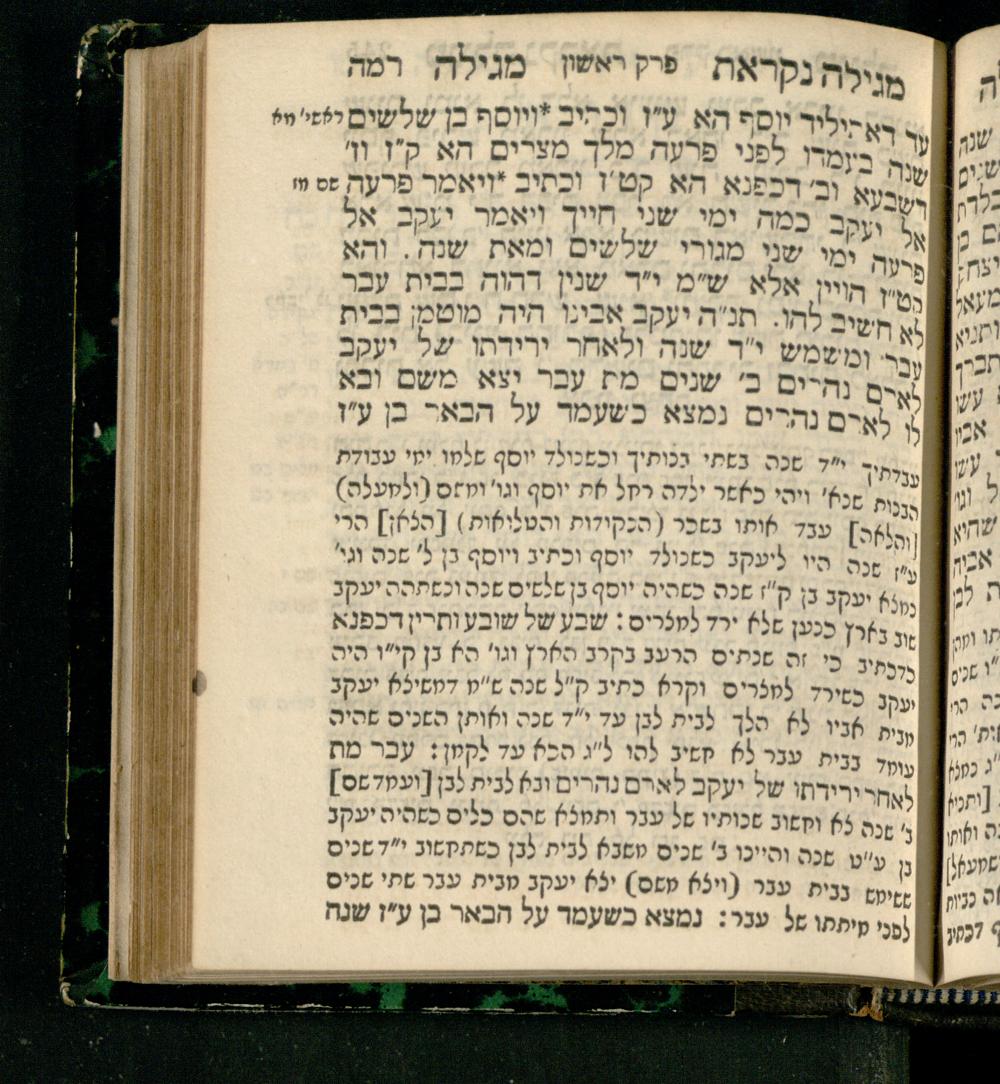 מגילה נקראת פרק ראשון מגילה רמה
עד דאתיליד יוסף הא ע״ז וכתיב *ויוסף בן שלשים ראשי׳ מא
שנה בעמדו לפני פרעה מלך מצרים הא ק״ז וז׳
דשבעא וב׳ דכפנא הא קט״ז וכתיב *ויאמר פרעה שם מז
אל יעקב כמה ימי שני חייך ויאמר יעקב אל
פרעה ימי שני מגורי שלשים ומאת שנה. והא
קט״ז הויין אלא ש״מ י״ד שנין דהוה בבית עבר
לא חשיב להו. תנ״ה יעקב אבינו היה מוטמן בבית
עבר ומשמש י״ד שנה ולאחר ירידתו של יעקב
לארם נהרים ב׳ שנים מת עבר יצא משם ובא
לו לארם נהרים נמצא כשעמד על הבאר בן ע״ז
עבדתיך י״ד שנה בשתי בנותיך וכשנולד יוסף שלמו ימי עבודת
הבנות שנא׳ ויהי כאשר ילדה רחל את יוסף וגו׳ ומשם (ולמעלה)
[והלאה] עבד אותו בשכר (הנקודות והטלואות) [הצאן] הרי
ע״ז שנה היו ליעקב כשנולד יוסף וכתיב ויוסף בן ל׳ שנה וגו׳
נמצא יעקב בן ק״ז שנה כשהיה יוסף בן שלשים שנה וכשתהה יעקב
שוב בארץ כנען שלא ירד למצרים: שבע של שובע ותרין דכפנא
כדכתיב כי זה שנתים הרעב בקרב הארץ וגו׳ הא בן קי״ו היה
יעקב כשירד למצרים וקרא כתיב ק״ל שנה ש״מ דמשיצא יעקב
מבית אביו לא הלך לבית לבן עד י״ד שנה ואותן השנים שהיה
עומד בבית עבר לא חשיב להו ל״ג הכא עד לקמן: עבר מת
לאחר ירידתו של יעקב לארם נהרים ובא לבית לבן [ועמד שם]
ב׳ שנה צא וחשוב שנותיו של עבר ותמצא שהם כלים כשהיה יעקב
בן ע״ט שנה והיינו ב׳ שנים משבא לבית לבן כשתחשוב י״ד שנים
ששימש בבית עבר (ויצא משם) יצא יעקב מבית עבר שתי שנים
לפני מיתתו של עבר: נמצא כשעמד על הבאר בן ע״ז שנה